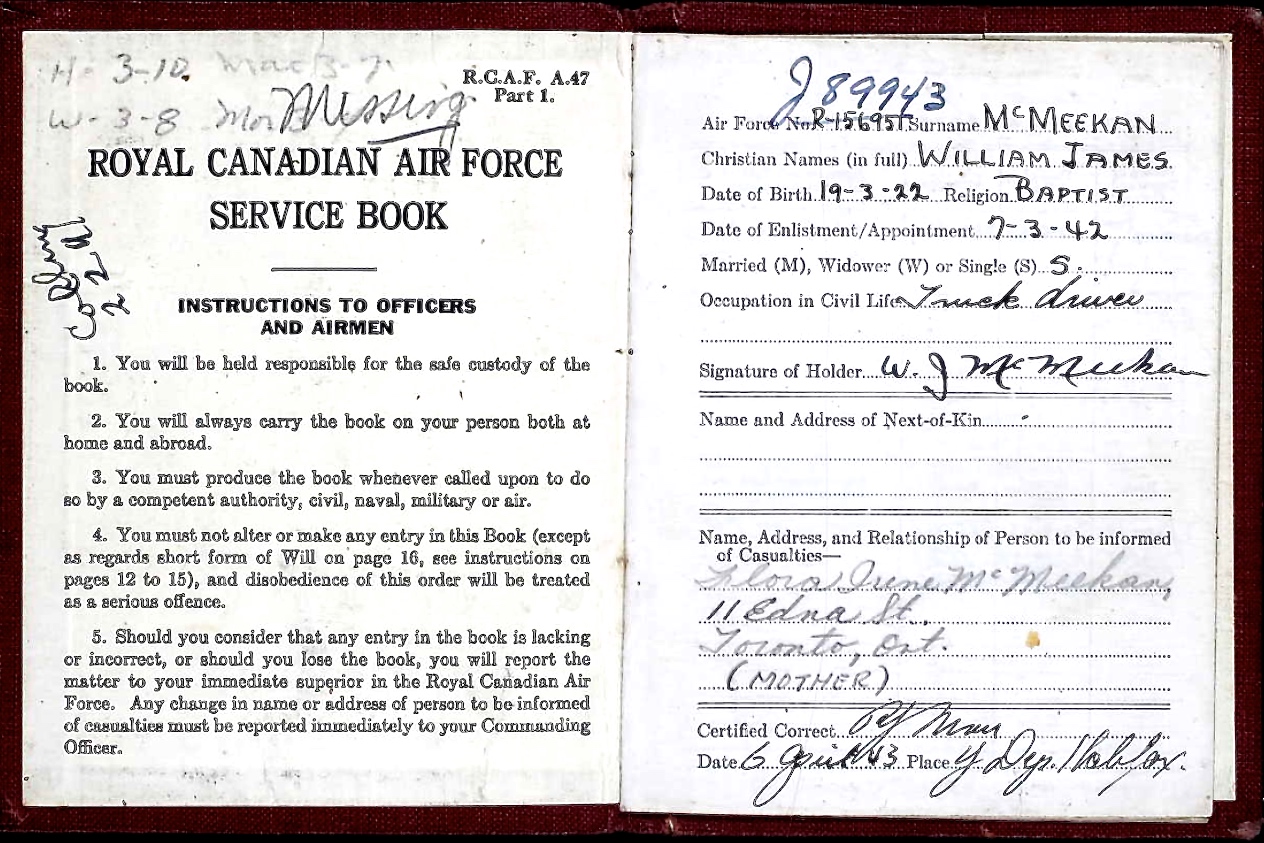 H- 3-10.
R.C.A.F. A.47
Part 1.
W-3-8
Missing
ROYAL CANADIAN AIR FORCE
SERVICE BOOK
INSTRUCTIONS TO OFFICERS
AND AIRMEN
1. You will be held responsible for the safe custody of the
book.
2. You will always carry the book on your person both at
home and abroad.
3. You must produce the book whenever called upon to do
so by a competent authority, civil, naval, military or air.
4. You must not alter or make any entry in this Book (except
as regards short form of Will on page 16, see instructions on
pages 12 to 15), and disobedience of this order will be treated
as a serious offence.
5. Should you consider that any entry in the book is lacking
or incorrect, or should you lose the book, you will report the
matter to your immediate superior in the Royal Canadian Air
Force. Any change in name or address of person to be informed
of casualties must be reported immediately to your Commanding
Officer.
J 89943
Air Force No. R-156957 Surname McMEEKAN
Christian Names (in full) WILLIAM JAMES
Date of Birth 19-3-22 Religion BAPTIST
Date of Enlistment/Appointment 7-3-42
Married (M), Widower (W) or Single (S) S.
Occupation in Civil Life Truck driver
Signature of Holder W. J McMeekan
Name and Address of Next-of-Kin
Name, Address, and Relationship of Person to be informed
of Casualties—
Flora June McMeekan,
11 Edna St.,
Toronto, Ont.
(MOTHER)
Certified Correct
Date 6 43 Place Y Dep. Halifax.